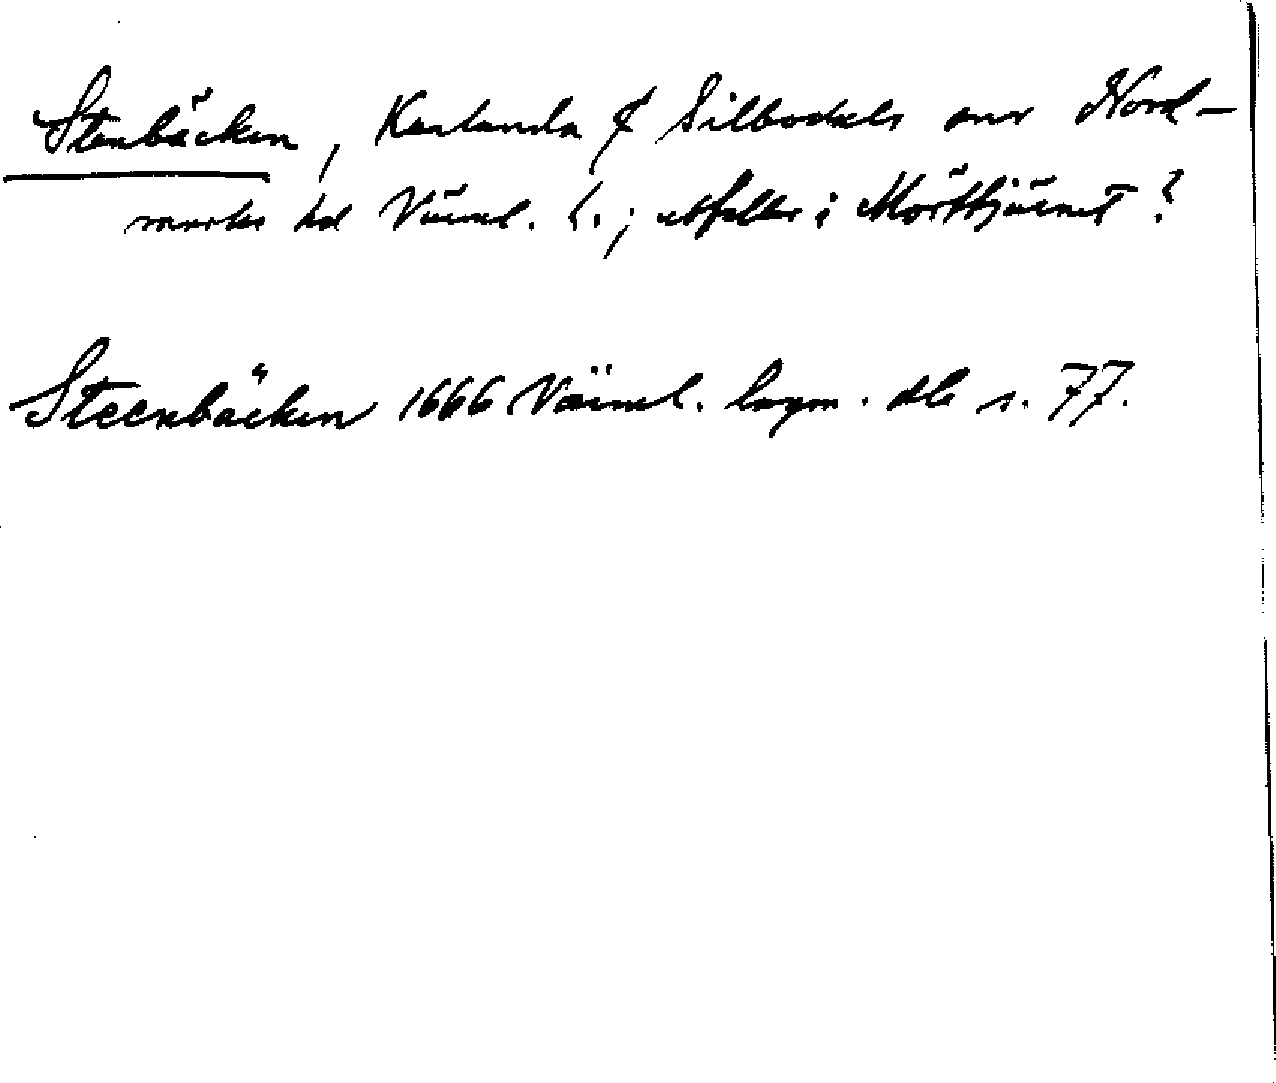 Stenbäcken, Karlanda & Silbodals snr Nord-
marks hd Värml. l.; utfaller i Mörttjärnet?
Steenbäcken 1666 Värml. lagm. db s. 77.